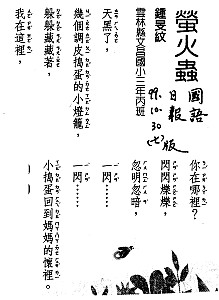 螢火蟲
國語
日報
99.10.30
(七)版
鍾旻紋
雲林縣文昌國小三年丙班
天黑了,
幾個調皮搗蛋的小燈籠,
躲躲藏藏著,
我在這裡,
你在哪裡?
閃閃爍爍,
忽明忽暗,
一閃……
一閃……
小搗蛋回到媽媽的懷裡。